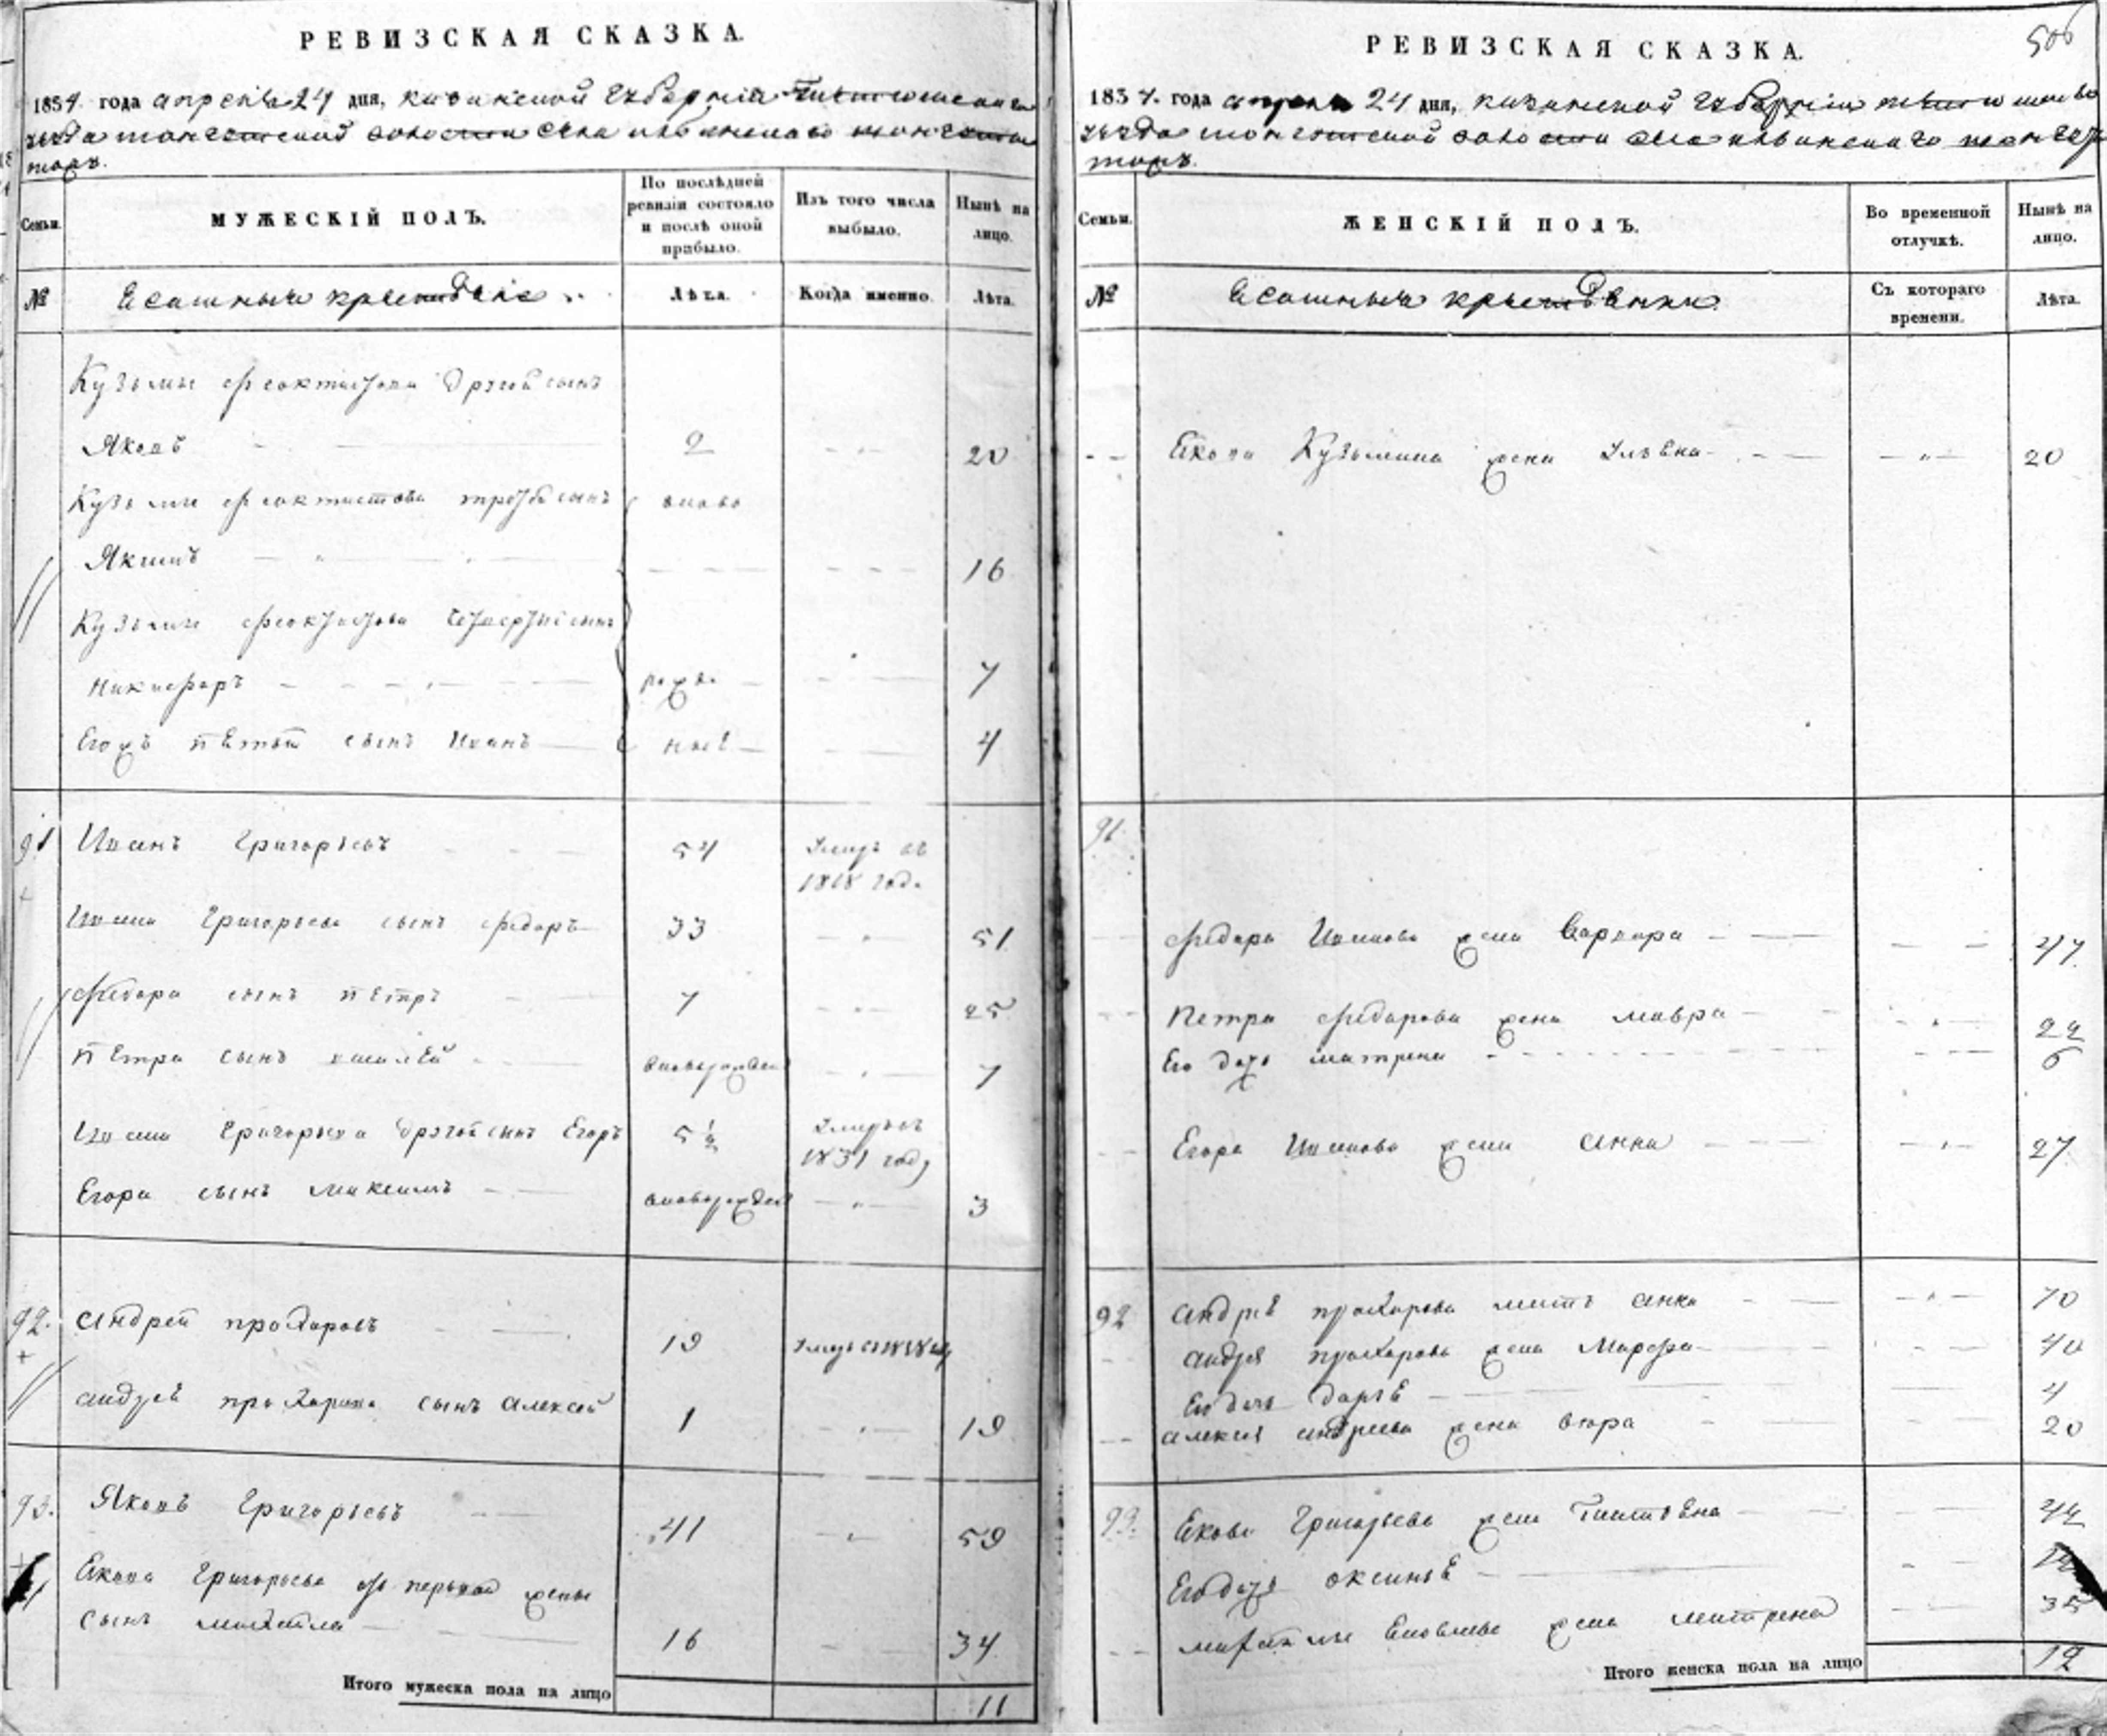 РЕВИЗСКАЯ СКАЗКА.
1834 года апреля 24 дня, казанской губернии
уезда волости села
МУЖЕСКІЙ ПОЛЪ.
Семьи.
По послѣдней ревизіи состояло и послѣ оной прибыло.
Изъ того числа выбыло.
Нынѣ на лицо.
№
Ясашныя крестьяне
Лѣта.
Когда именно.
Лѣта.
Кузьмы Феоктистова другой сынъ
Яковъ 2 20
Кузьмы Феоктистова третій сынъ вновь
Якимъ 16
Кузьмы Феоктистова четвертый сынъ
Никифоръ рожде 7
Егожъ пятый сынъ Иванъ ные 4
91 Иванъ Григорьевъ 54 умеръ въ
1818 году
Ивана Григорьева сынъ Федоръ 33 51
Федора сынъ Петръ 7 25
Петра сынъ вноворожден 7
Ивана Григорьева другой сынъ Егоръ 5½ умеръ въ
1831 году
Егора сынъ Максимъ вноворожден 3
92. Андрей Прохоровъ 19 умеръ
Андрея Прохорова сынъ Алексей 1 19
93. Яковъ Григорьевъ 41 59
Якова Григорьева отъ первой жены
сынъ Михайла 16 34
Итого мужеска пола на лицо 11
506
РЕВИЗСКАЯ СКАЗКА.
1834. года апреля 24 дня, казанской губернии
уезда волости села
Семьи.
ЖЕНСКІЙ ПОЛЪ.
Во временной отлучкѣ.
Нынѣ на лицо.
№
Ясашныя крестьянки
Съ котораго времени.
Лѣта.
Якова Кузьмина жена Ульяна 20
91.
Федора Иванова жена Варвара 47
Петра Федорова жена Мавра 22
Его дочь Матрена 6
Егора Иванова жена Анна 27
92 Андрея Прохорова мать Анна 70
Андрея Прохорова жена Марфа 40
Его дочь Дарья 4
Алексея Андреева жена 20
93. Якова Григорьева жена 42
Его дочь Оксинья
Михайлы Яковлева жена Матрена 35
Итого женска пола на лицо 12